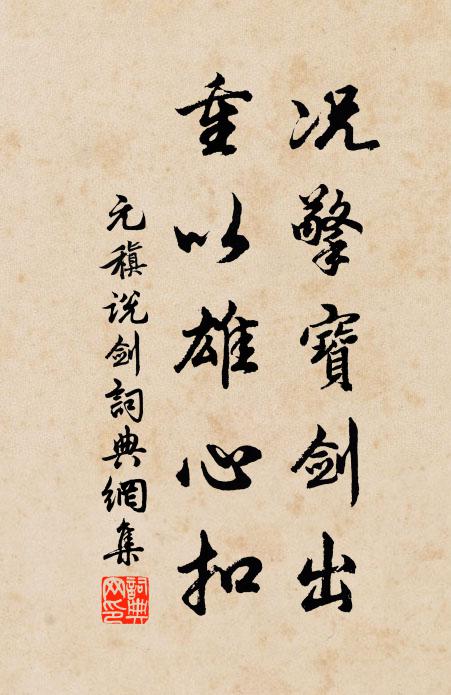 况擎寶劍出
重以雄心扣
元稹说劍詞典網集
詞典網印